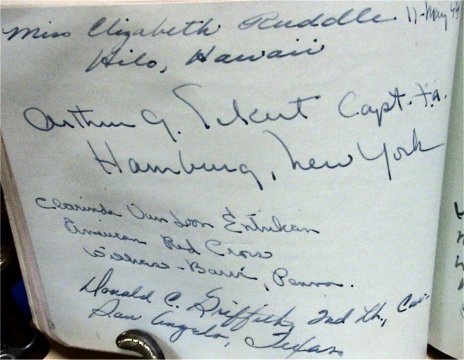 Miss Elizabeth Ruddle 11-May 44
Hilo, Hawaii
Arthur G. Eckert Capt. F.A.
Hamburg, New York
Clarinda Van Entrikan
American Red Cross
Wilkes-Barre, Penna.
Donald C. Griffith, 2nd Lt., Cav.
San Angelo, Texas